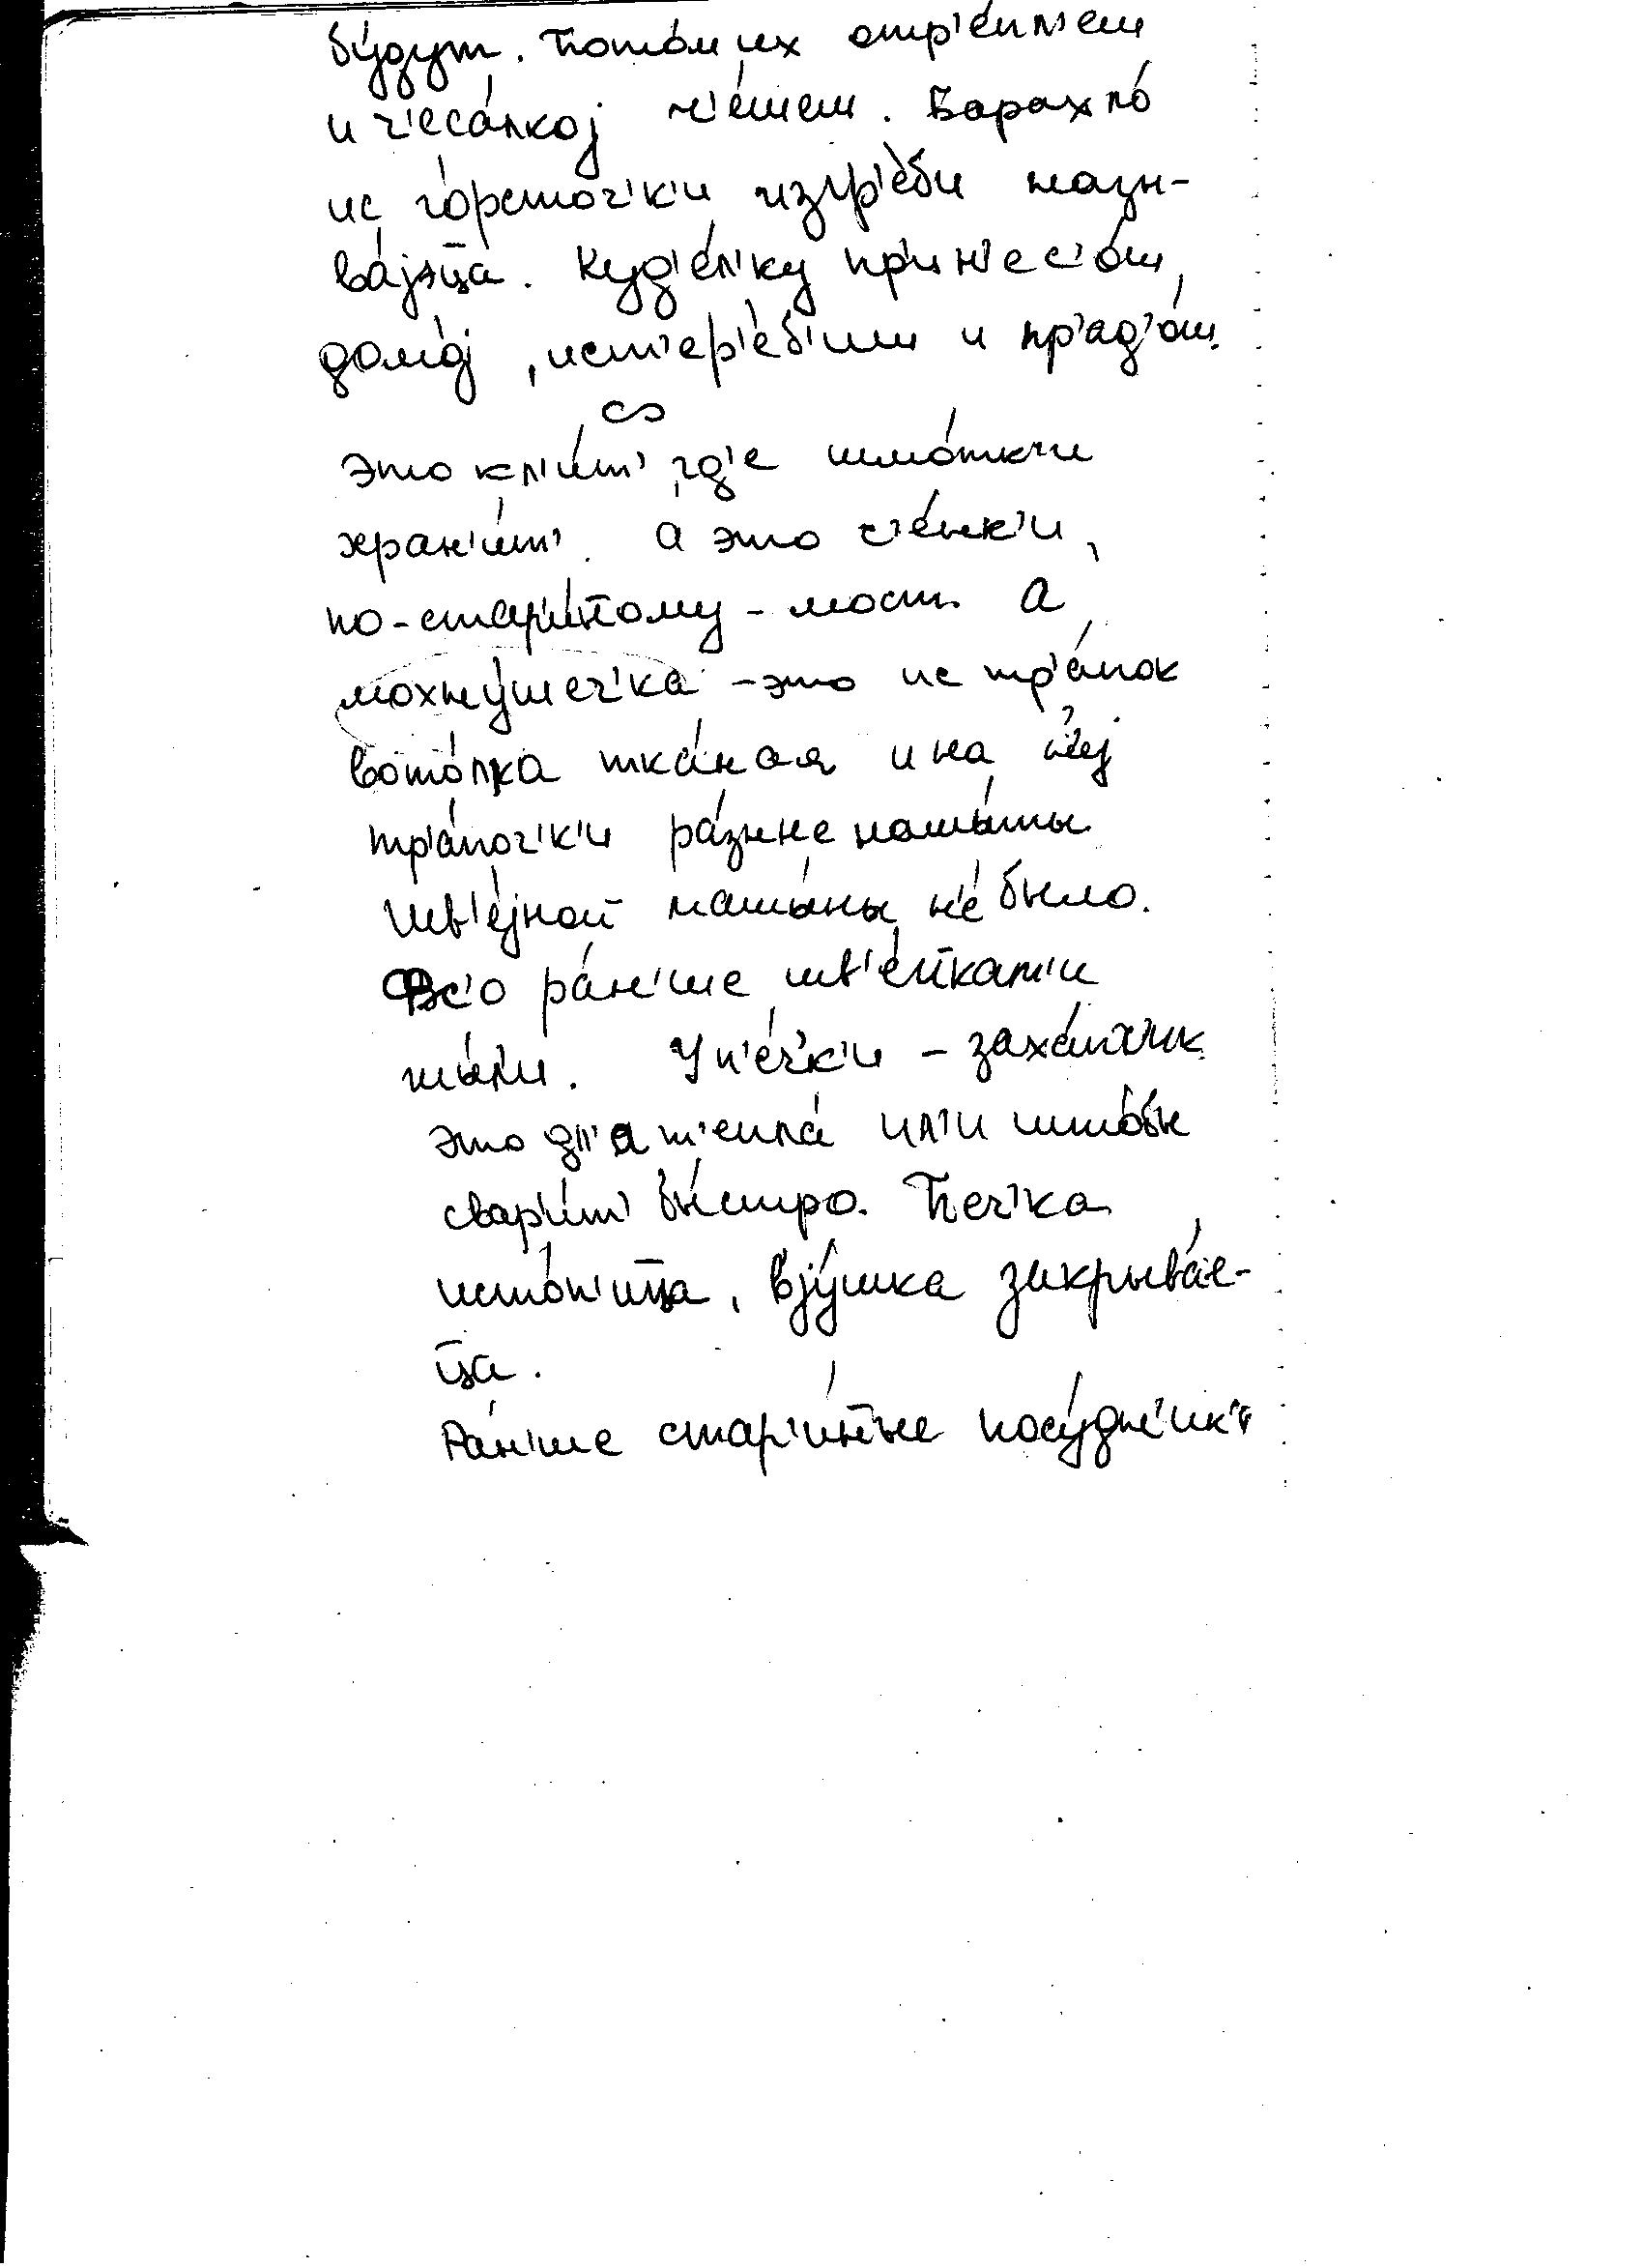 бу́дут. Пото́м их отр'е́пл'ем
и ч'еса́лкој ч'е́шем. Барахло́
ис го́рсточ'к'и изгр'е́би назы-
ва́јэц̄а. Куд'е́л'ку пр'ин'ес'о́ш,
домо́ј, ист'ер'е́б'иш и пр'ад'о́ш.
∽
Это кл'и́т', гд'е шмо́тки
хран'и́т'. А это с'е́нк'и,
по-стар'и́н̄ому - мост. А
мохну́шеч'ка - это ис тр'а́пок
вато́лка тка́ная и на н'е́ј
тр'а́поч'к'и ра́зные нашы́ты.
Шв'е́јной машы́ны н'е́ было.
Вс'о ра́н'ше шв'е́йкам'и
шы́л'и. У п'е́ч'к'и - заха́пч'ик
это дл'а т'епла́ ил'и што́бы
свар'и́т' бы́стро. Печ'ка
исто́п'иц̄а, вју́шка закрыва́е-
ц̄а.
Ра́н'ше стар'и́н̄ые посу́дн'ик'и